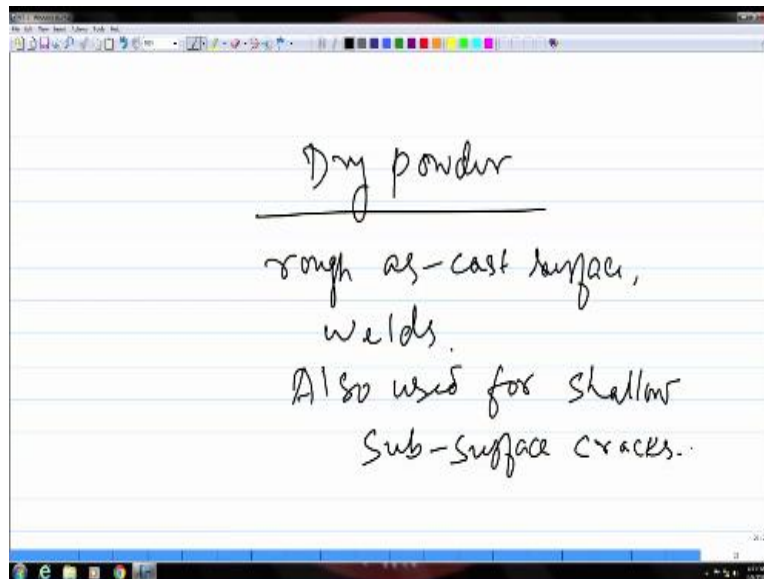 Dry powder
rough as-cast surface,
welds.
Also used for shallow
sub-surface cracks.